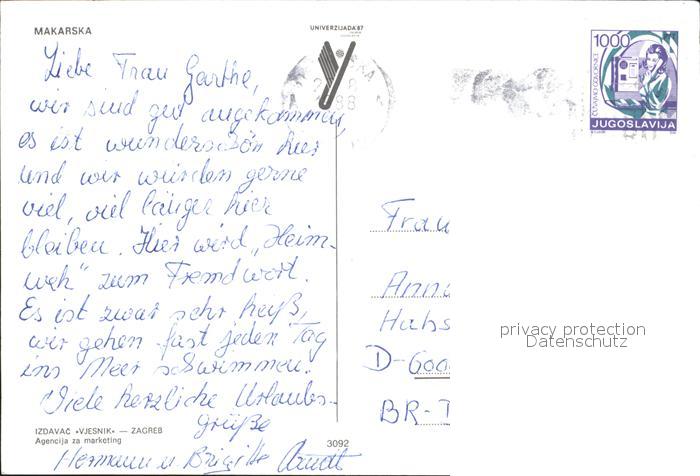 MAKARSKA
UNIVERZIJADA'87
Liebe Frau Garthe,
wir sind gut angekommen,
es ist wunderschön hier
und wir würden gerne
viel, viel länger hier
bleiben. Hier wird „Heim-
weh" zum Fremdwort.
Es ist zwar sehr heiß,
wir gehen fast jeden Tag
ins Meer schwimmen.
Viele herzliche Urlaubs-
grüße
Hermann u. Brigitte
IZDAVAČ «VJESNIK» — ZAGREB
Agencija za marketing
3092
88
1000
JUGOSLAVIJA
Frau
Anna
Habs
D-600
BR-
privacy protection
Datenschutz